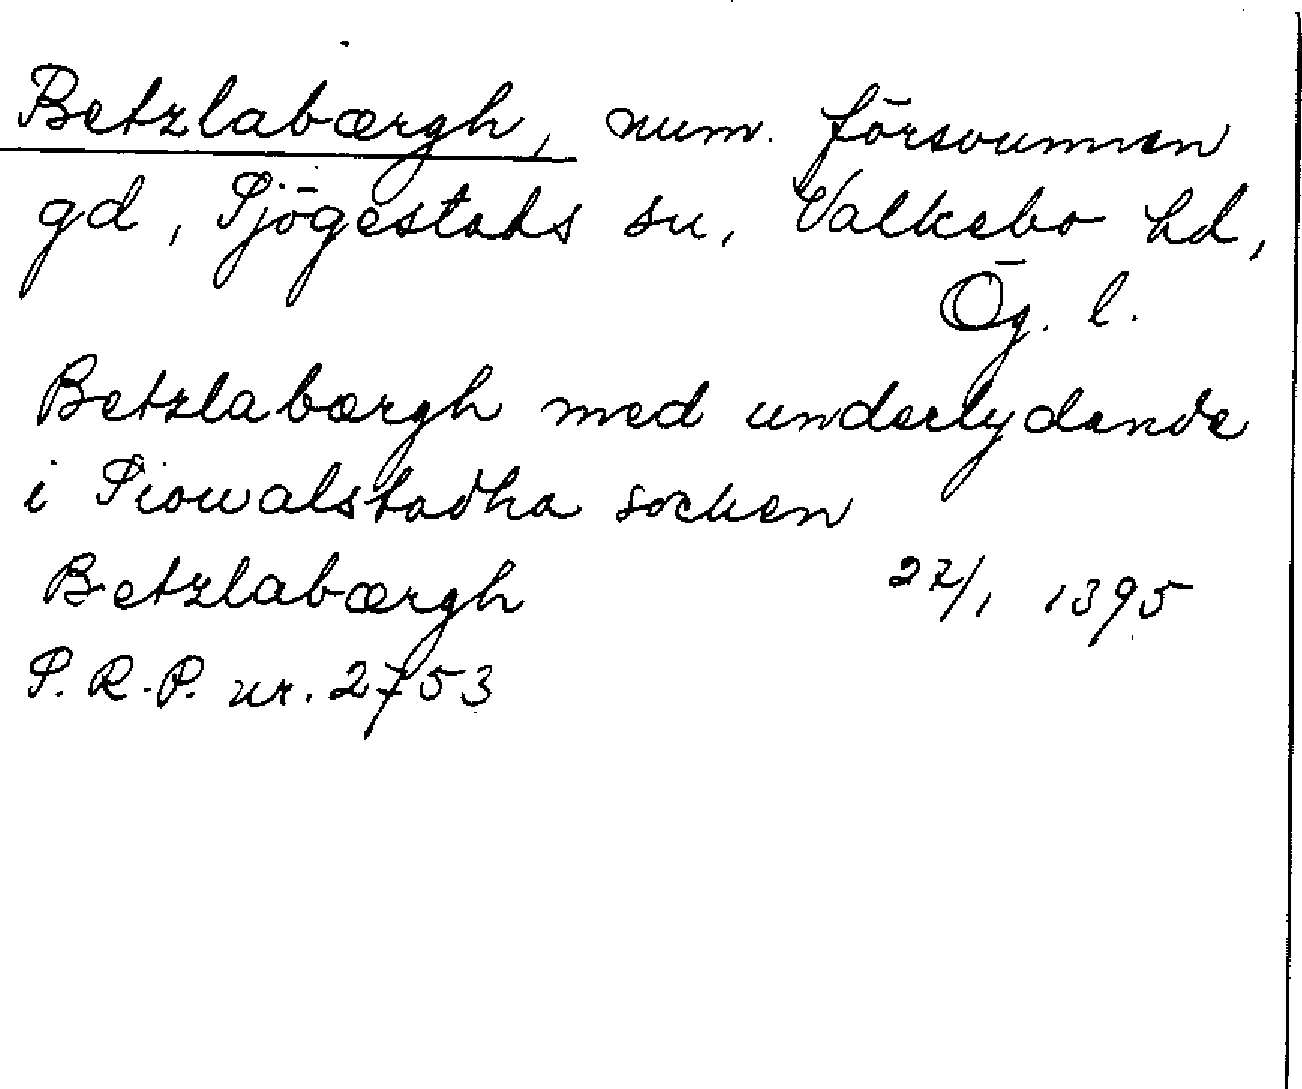 Betzlabærgh, num. försvunnen
gd, Sjögestads sn, Valkebo hd,
Ög. l.
Betzlabærgh med underlydande
i Siowalstadha socken
Betzlabærgh 22/1 1395
S. R. P. nr. 2753